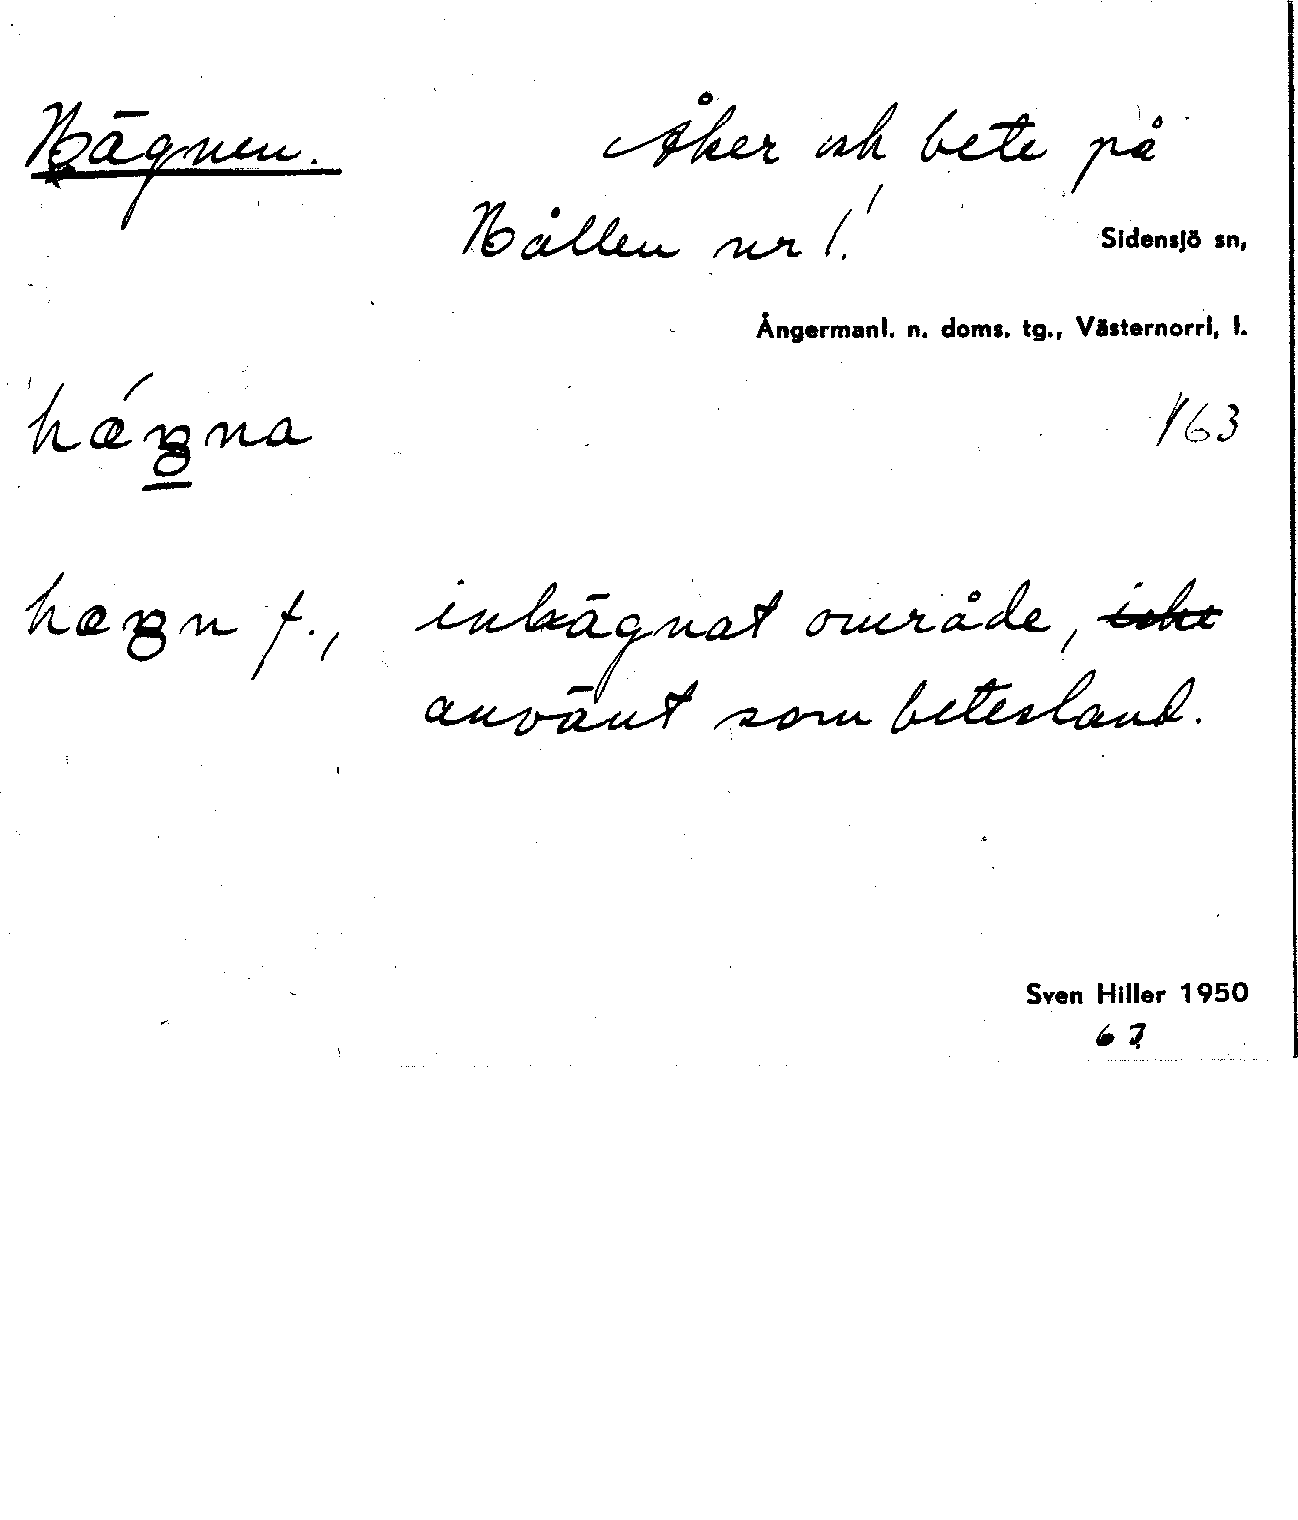 Hägnen. Åker och bete på
Hållen nr 1.
Sidensjö sn,
Ångermanl. n. doms. tg., Västernorrl. l.
hǽŋna 163
hæŋn f., inhägnat område, icke
använt som betesland.
Sven Hiller 1950